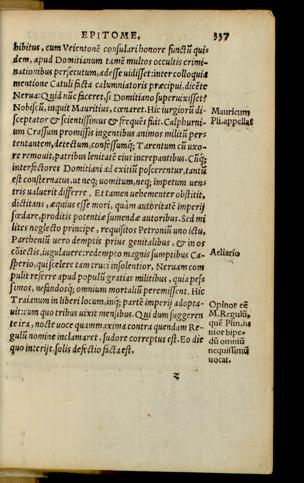 EPITOME. 337
hibitus, cum Veientone consulari honore functũ qui
dem, apud Domitianum tamẽ multos occultis crimi
nationibus persecutum, adesse uidisset: inter colloquia
mentione Catuli facta calumniatoris præcipui, dicẽte
Nerua: Quid nũc faceret, si Domitiano superuixisset?
Nobiscũ, inquit Mauritius, cœnaret. Hic iurgiorũ di-
sceptator & scientissimus & frequẽs fuit. Calphurni-
um Crassum promissis ingentibus animos militũ per-
tentantem, detectum, confessumq; Tarentum cũ uxo-
re remouit, patribus lenitatẽ eius increpantibus. Cũq;
interfectores Domitiani ad exitiũ poscerentur, tantũ
est consternatus, ut neq; uomitum, neq; impetum uen-
tris ualuerit differre. Et tamen uehementer obstitit,
dictitans, æquius esse mori, quàm autoritatẽ imperij
fœdare, proditis potentiæ sumendæ autoribus. Sed mi
lites neglecto principe, requisitos Petroniũ uno ictu,
Partheniũ uero demptis prius genitalibus, & in os
cõiectis, iugulauere: redempto magnis sumptibus Ca-
sperio, qui scelere tam truci insolentior, Neruam com
pulit referre apud populũ gratias militibus, quia pess
simos, nefandosq; omnium mortaliũ peremissent. Hic
Traianum in liberi locum, inq; partẽ imperij adopta-
uit: cum quo tribus uixit mensibus. Qui dum suggeren
te ira, uoce quàm maxima contra quendam Re-
gulũ nomine inclamaret, sudore correptus est. Eo die
quo interijt, solis defectio facta est.
z
Mauricum
Pli. appellat
Aeliario
Opinor eẽ
M. Regulũ,
quẽ Plin. iu
nior bipe-
dũ omniũ
nequissimũ
uocat.